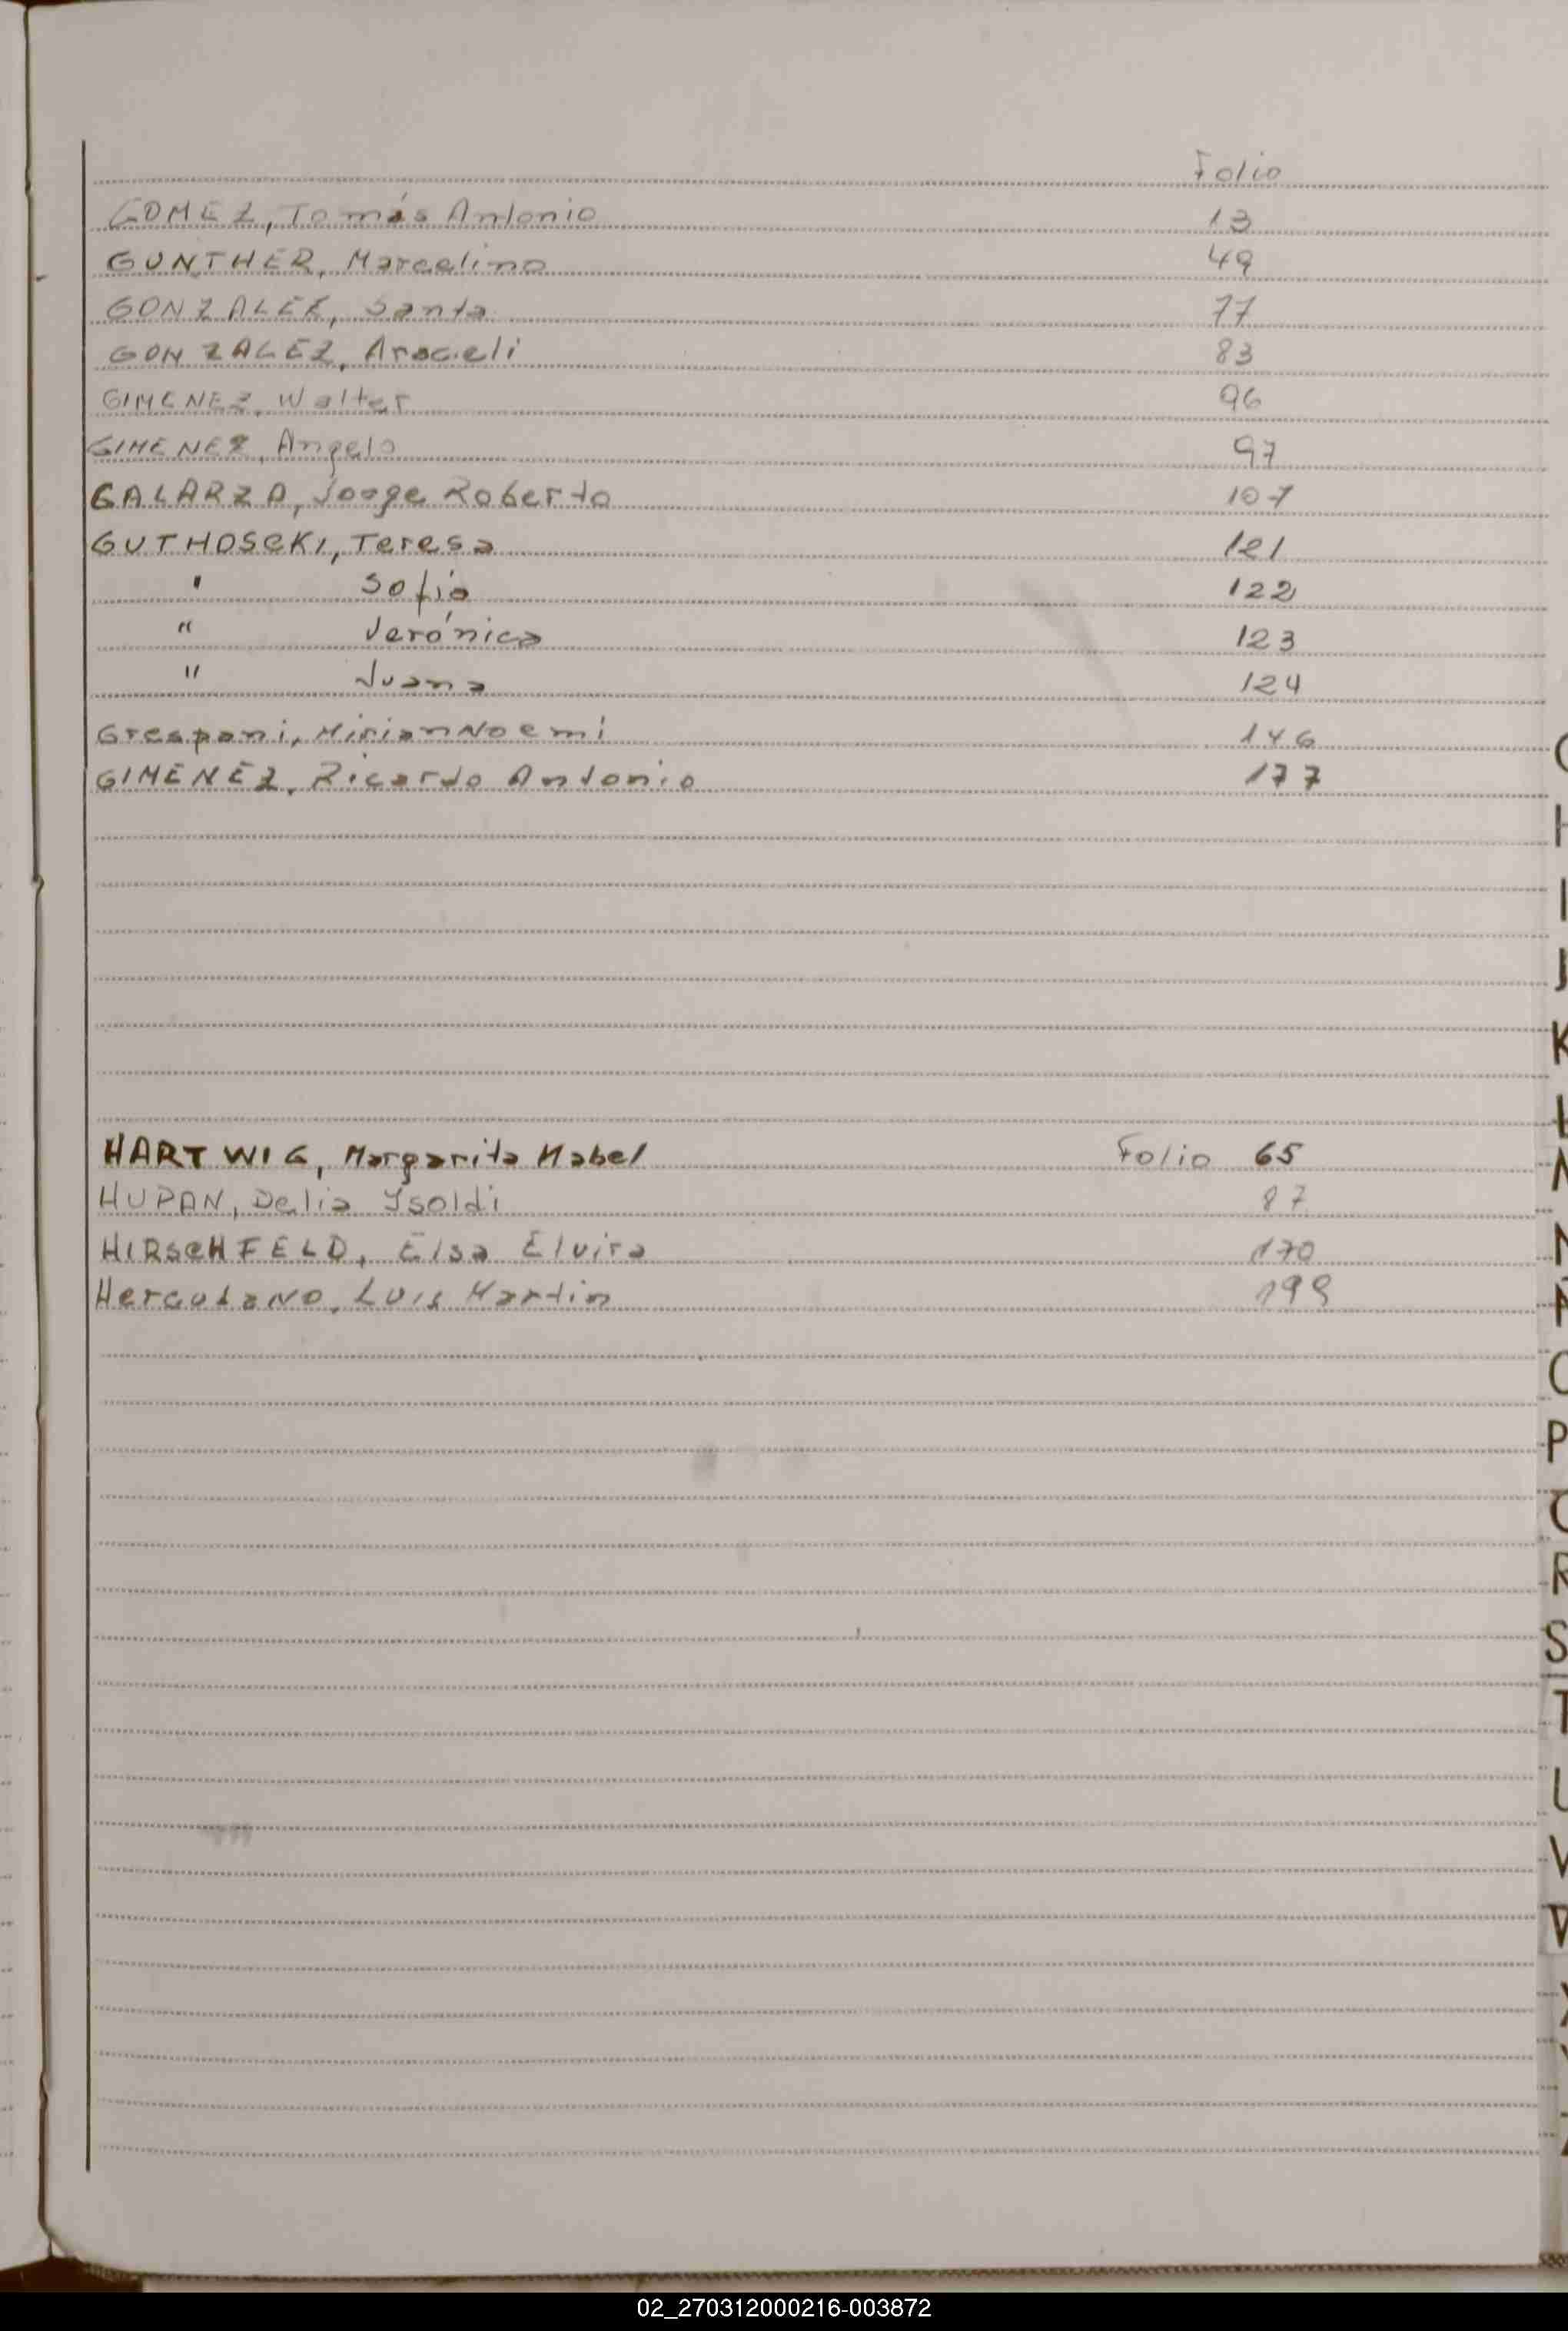 Folio
GOMEZ, Tomás Antonio 13
GUNTHER, Marcelino 49
GONZALEZ, Santa 77
GONZALEZ, Araceli 83
GIMENEZ, Walter 96
GIMENEZ, Angela 97
GALARZA, Jorge Roberto 107
GUTHOSCKI, Teresa 121
" Sofia 122
" Verónica 123
" Juana 124
Grespani, Mirian Noemi 146
GIMENEZ, Ricardo Antonio 177
HARTWIG, Margarita Mabel Folio 65
HUPAN, Delia Ysoldi 87
HIRSCHFELD, Elsa Elvira 170
Herculano, Luis Martin
H
I
J
K
L
P
R
S
T
U
V
02_270312000216-003872